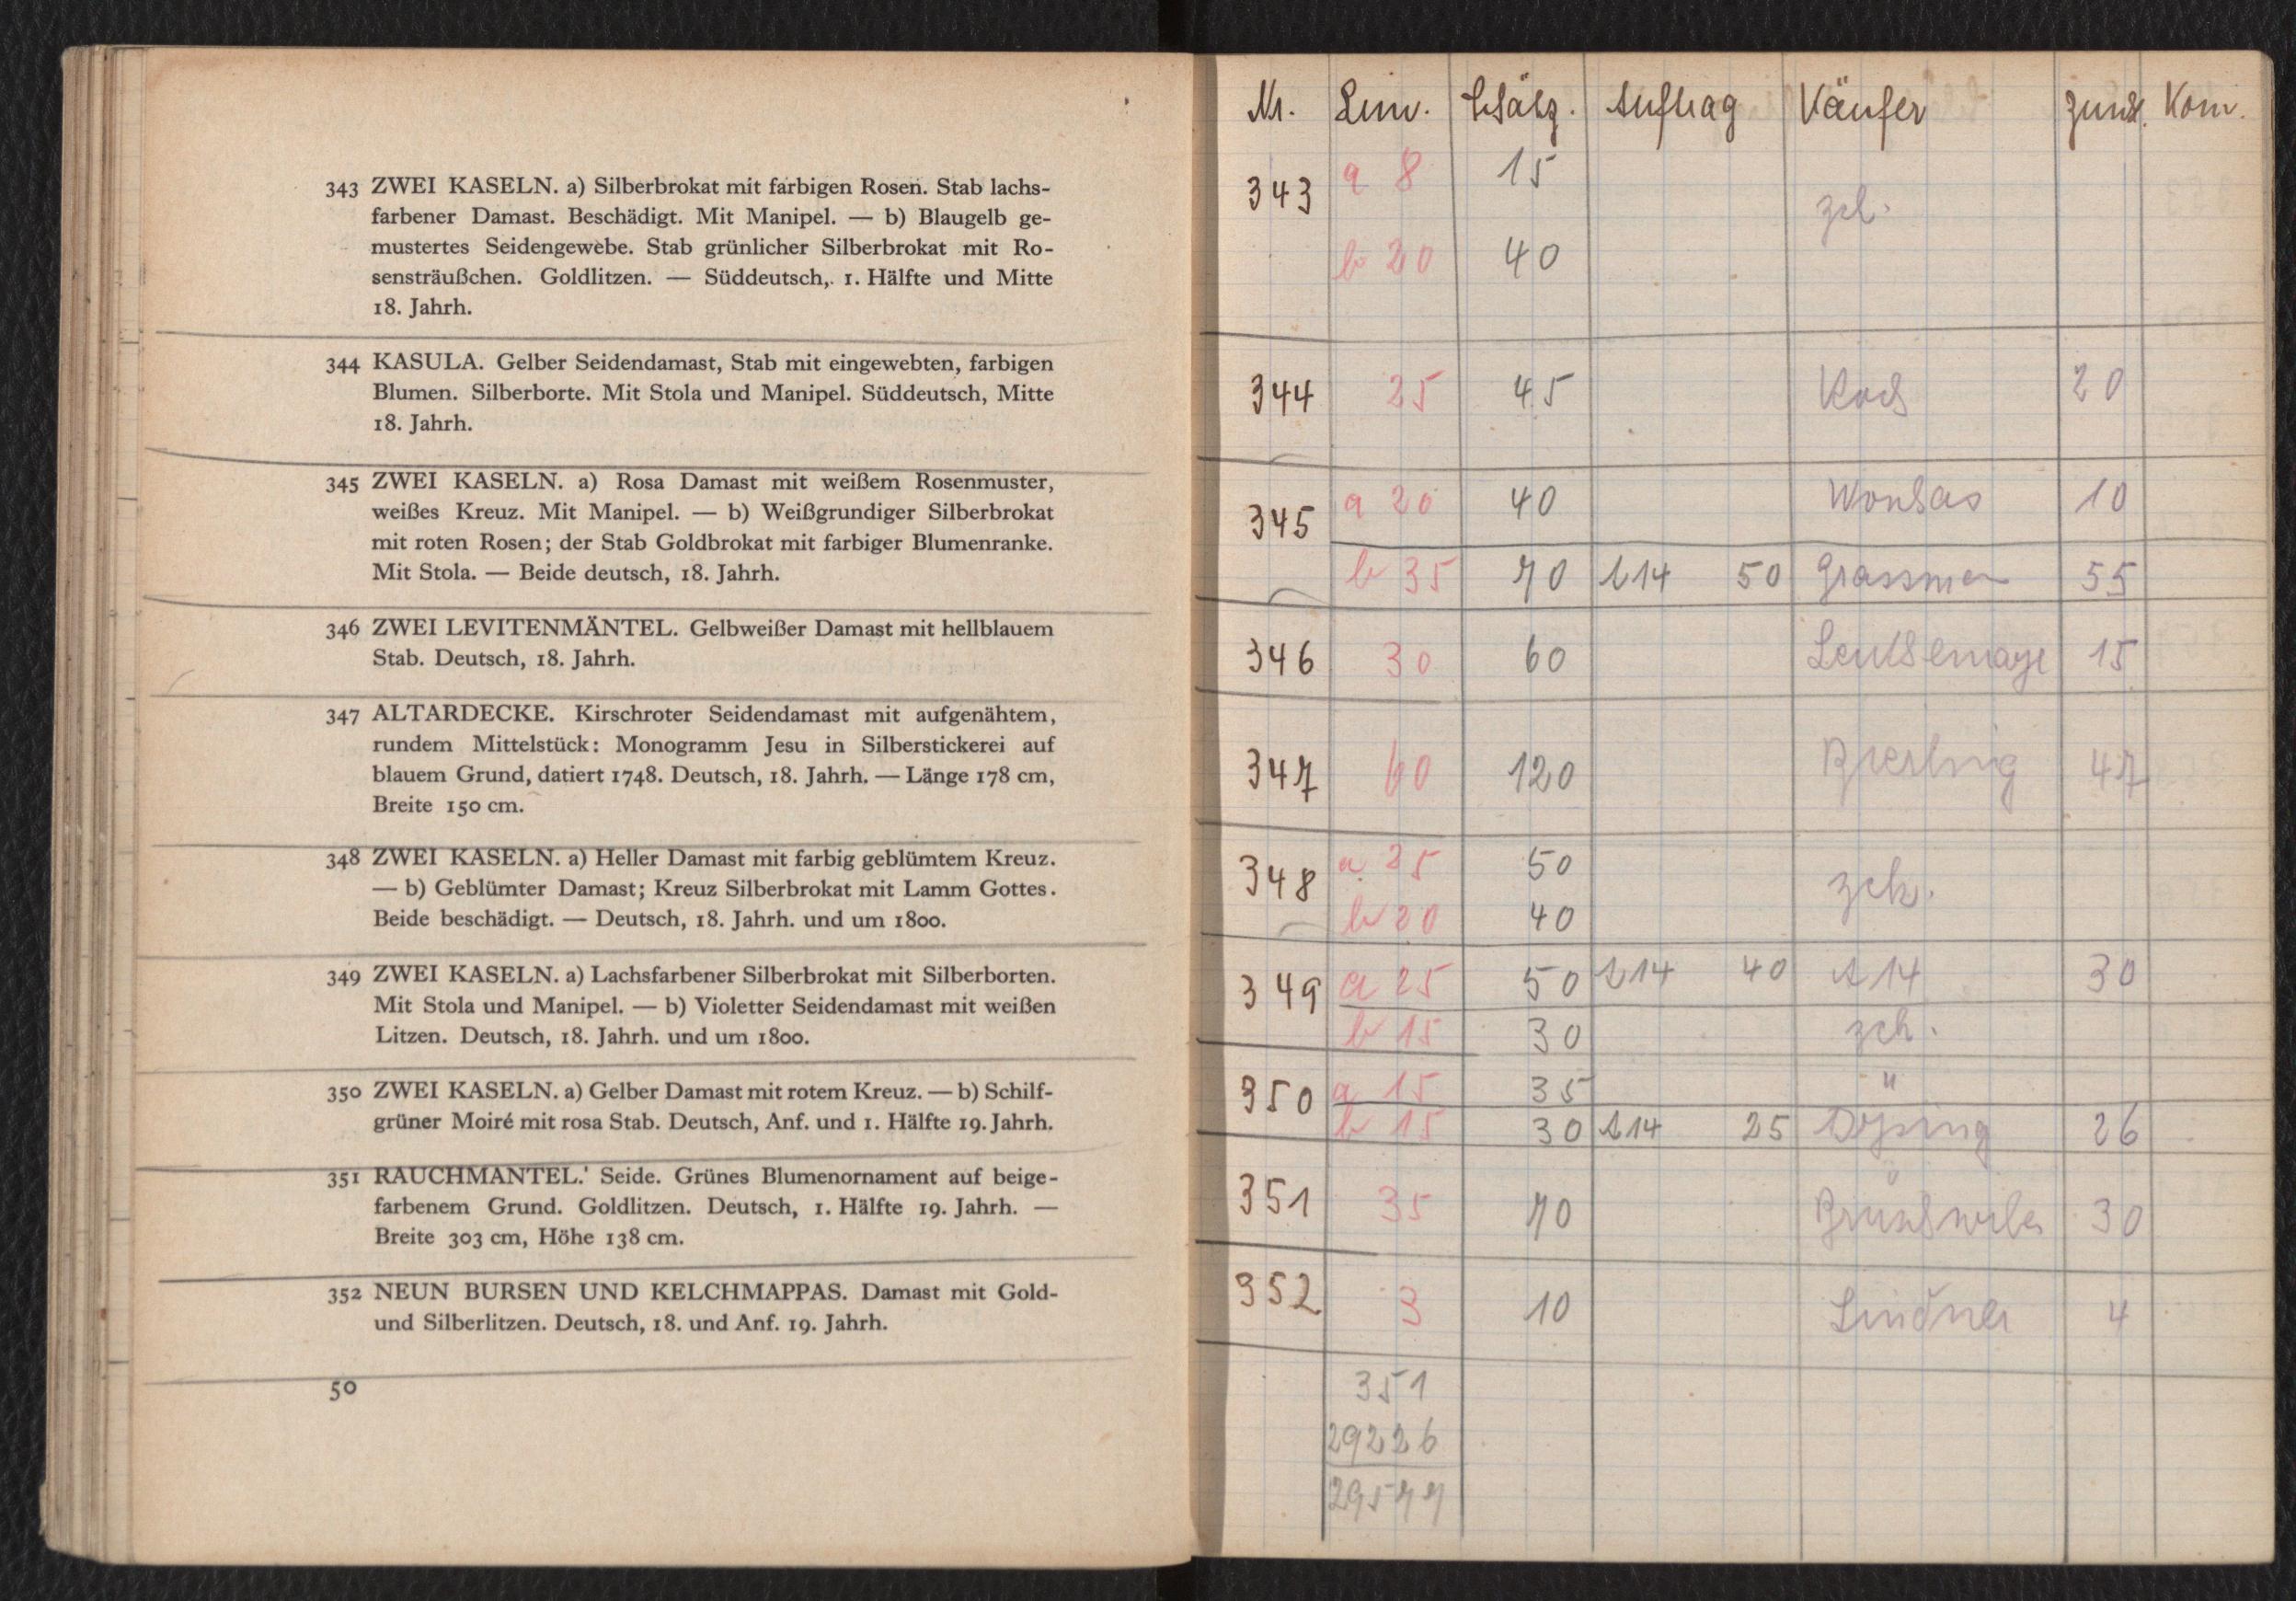 343 ZWEI KASELN. a) Silberbrokat mit farbigen Rosen. Stab lachs-
farbener Damast. Beschädigt. Mit Manipel. — b) Blaugelb ge-
mustertes Seidengewebe. Stab grünlicher Silberbrokat mit Ro-
sensträußchen. Goldlitzen. — Süddeutsch, 1. Hälfte und Mitte
18. Jahrh.
344 KASULA. Gelber Seidendamast, Stab mit eingewebten, farbigen
Blumen. Silberborte. Mit Stola und Manipel. Süddeutsch, Mitte
18. Jahrh.
345 ZWEI KASELN. a) Rosa Damast mit weißem Rosenmuster,
weißes Kreuz. Mit Manipel. — b) Weißgrundiger Silberbrokat
mit roten Rosen; der Stab Goldbrokat mit farbiger Blumenranke.
Mit Stola. — Beide deutsch, 18. Jahrh.
346 ZWEI LEVITENMÄNTEL. Gelbweißer Damast mit hellblauem
Stab. Deutsch, 18. Jahrh.
347 ALTARDECKE. Kirschroter Seidendamast mit aufgenähtem,
rundem Mittelstück: Monogramm Jesu in Silberstickerei auf
blauem Grund, datiert 1748. Deutsch, 18. Jahrh. — Länge 178 cm,
Breite 150 cm.
348 ZWEI KASELN. a) Heller Damast mit farbig geblümtem Kreuz.
— b) Geblümter Damast; Kreuz Silberbrokat mit Lamm Gottes.
Beide beschädigt. — Deutsch, 18. Jahrh. und um 1800.
349 ZWEI KASELN. a) Lachsfarbener Silberbrokat mit Silberborten.
Mit Stola und Manipel. — b) Violetter Seidendamast mit weißen
Litzen. Deutsch, 18. Jahrh. und um 1800.
350 ZWEI KASELN. a) Gelber Damast mit rotem Kreuz. — b) Schilf-
grüner Moiré mit rosa Stab. Deutsch, Anf. und 1. Hälfte 19. Jahrh.
351 RAUCHMANTEL. Seide. Grünes Blumenornament auf beige-
farbenem Grund. Goldlitzen. Deutsch, 1. Hälfte 19. Jahrh. —
Breite 303 cm, Höhe 138 cm.
352 NEUN BURSEN UND KELCHMAPPAS. Damast mit Gold-
und Silberlitzen. Deutsch, 18. und Anf. 19. Jahrh.
50
Nr. Lim. Schätz. Auftrag Käufer Kom.
343 a 8 15
b 20 40
344 25 45 Koch 20
345 a 20 40 10
b 35 70 14 50 55
346 30 60 15
347 60 120 47
348 a 25 50 zck.
b 20 40
349 a 25 50 14 40 14 30
b 15 30 zck.
350 a 15 35 "
b 15 30 14 25 26
351 35 70 30
352 3 10 Lindner 4
351
29226
29577